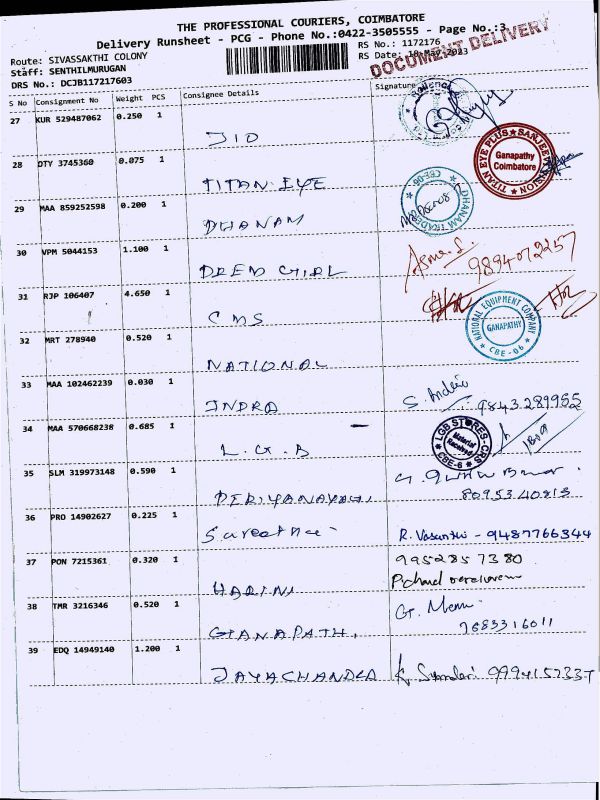 THE PROFESSIONAL COURIERS, COIMBATORE
Delivery Runsheet - PCG - Phone No.:0422-3505555 - Page No.:3
Route: SIVASSAKTHI COLONY
RS No.: 1172176
Staff: SENTHILMURUGAN
RS Date: 18-May-2023
DOCUMENT DELIVERY
DRS No.: DCJB117217603
S No Consignment No Weight PCS Consignee Details Signature
27 KUR 529487062 0.250 1
JIO
28 DTY 3745360 0.075 1
TITAN EYE
TITAN EYE PLUS ★ SANJEEV VISION ★
Ganapathy
Coimbatore
29 MAA 859252598 0.200 1
DHANAM
DHANAM TRADERS
CBE-06
30 VPM 5044153 1.100 1
DREM GIRL
9894072257
31 RJP 106407 4.650 1
CMS
32 MRT 278940 0.520 1
NATIONAL
NATIONAL EQUIPMENT COMPANY
GANAPATHY
★ CBE-06 ★
33 MAA 102462239 0.030 1
INDRA
9843289955
34 MAA 570668238 0.685 1
L.G.B
LGB STORES-CRS
Material
Received
CBE-6
35 SLM 319973148 0.590 1
PERIYANAYAGI
36 PRO 14902627 0.225 1
R. Vasanthi - 9487766344
37 PON 7215361 0.320 1
HARINI
9952857380
38 TMR 3216346 0.520 1
GANAPATHI
7683316011
39 EDQ 14949140 1.200 1
JAYACHANDRA
K. Sundari